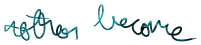 rather become